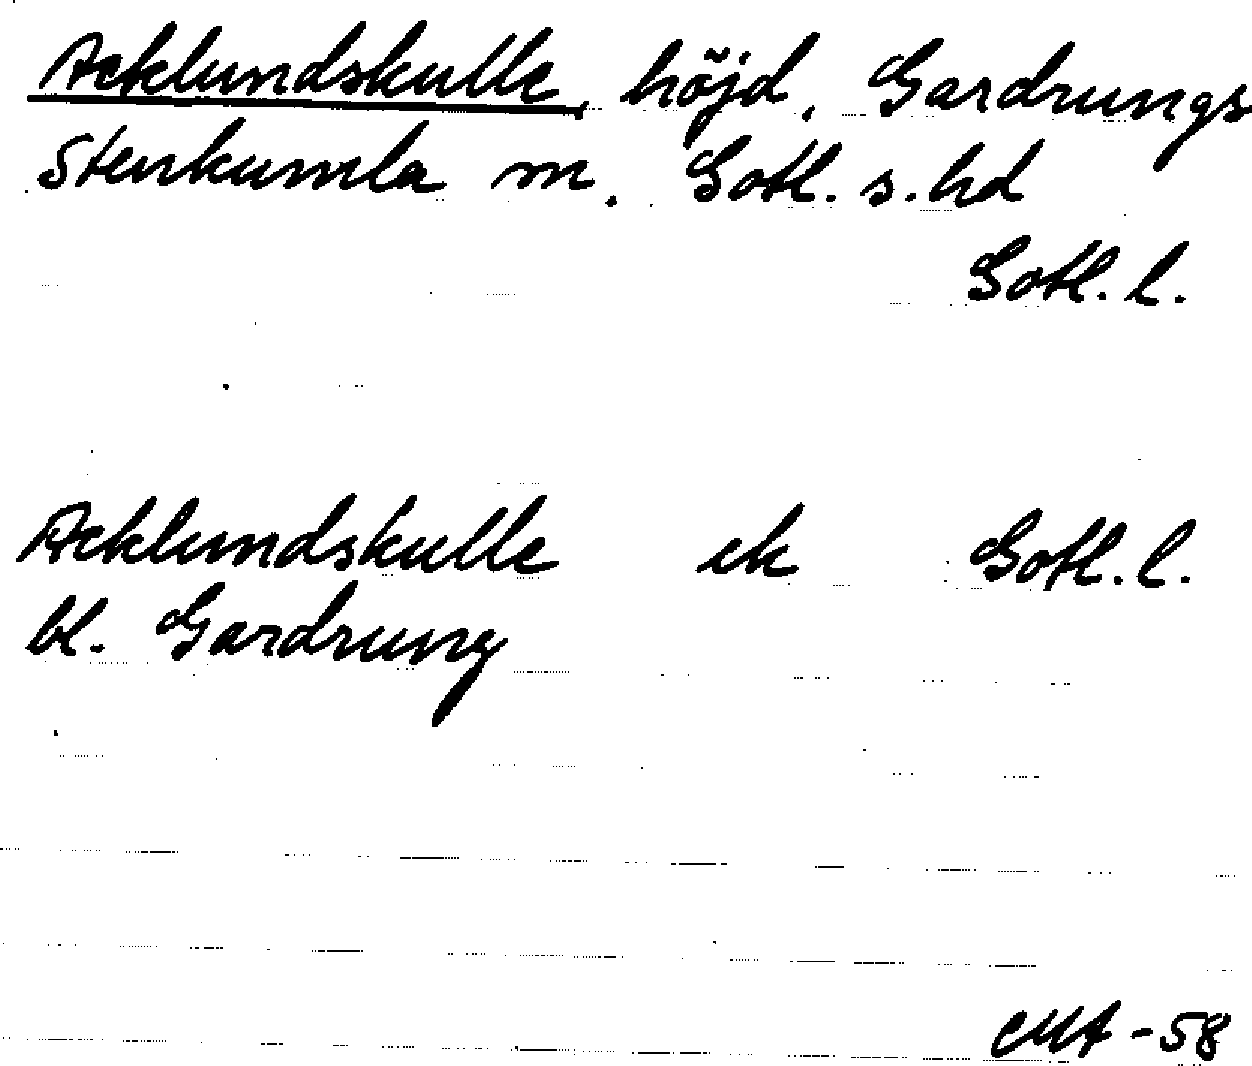 Acklundskulle, höjd, Gardrungs
Stenkumla m. Gotl. s. hd
Gotl. l.
Acklundskulle ek Gotl. l.
bl. Gardrung
-58